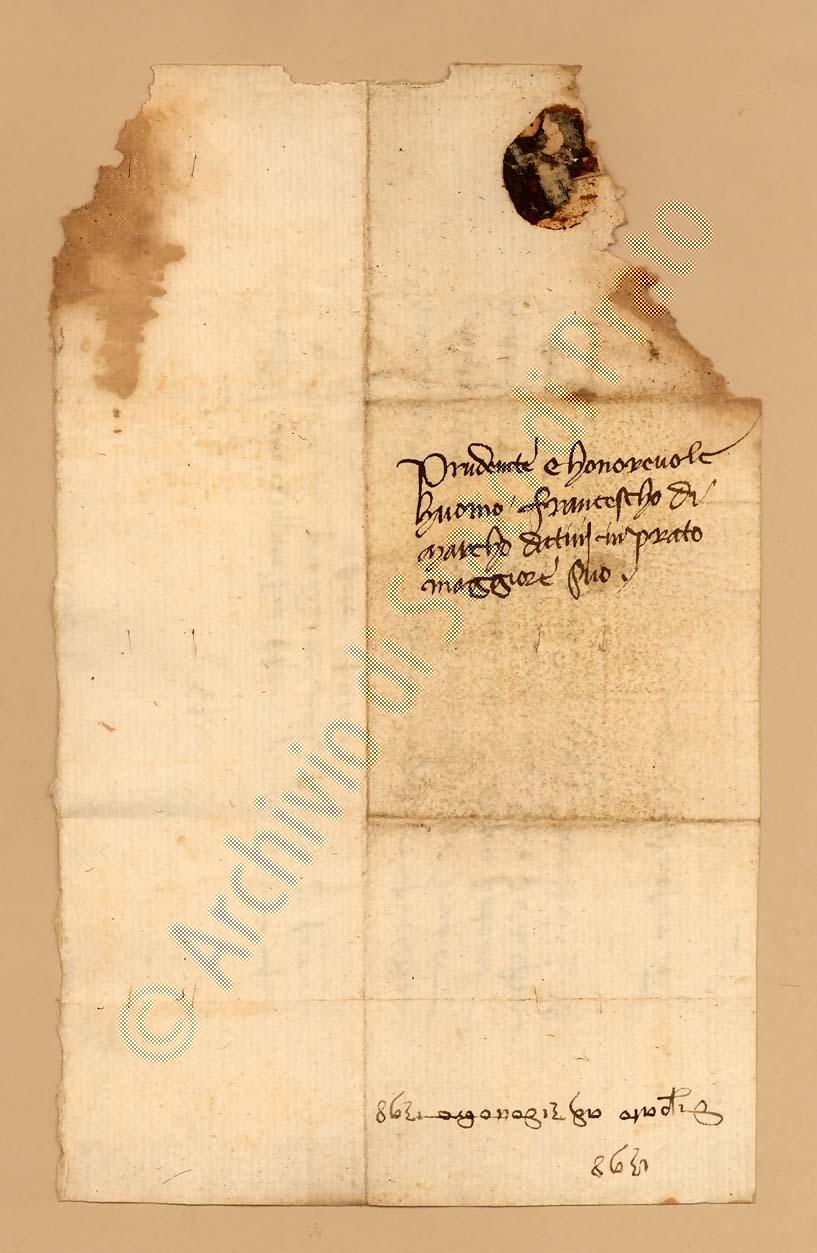 Prudente e honorevole
huomo francescho di
marcho datinj in prato
maggiore suo.
prato 1398
1398
© Archivio di Stato di Prato